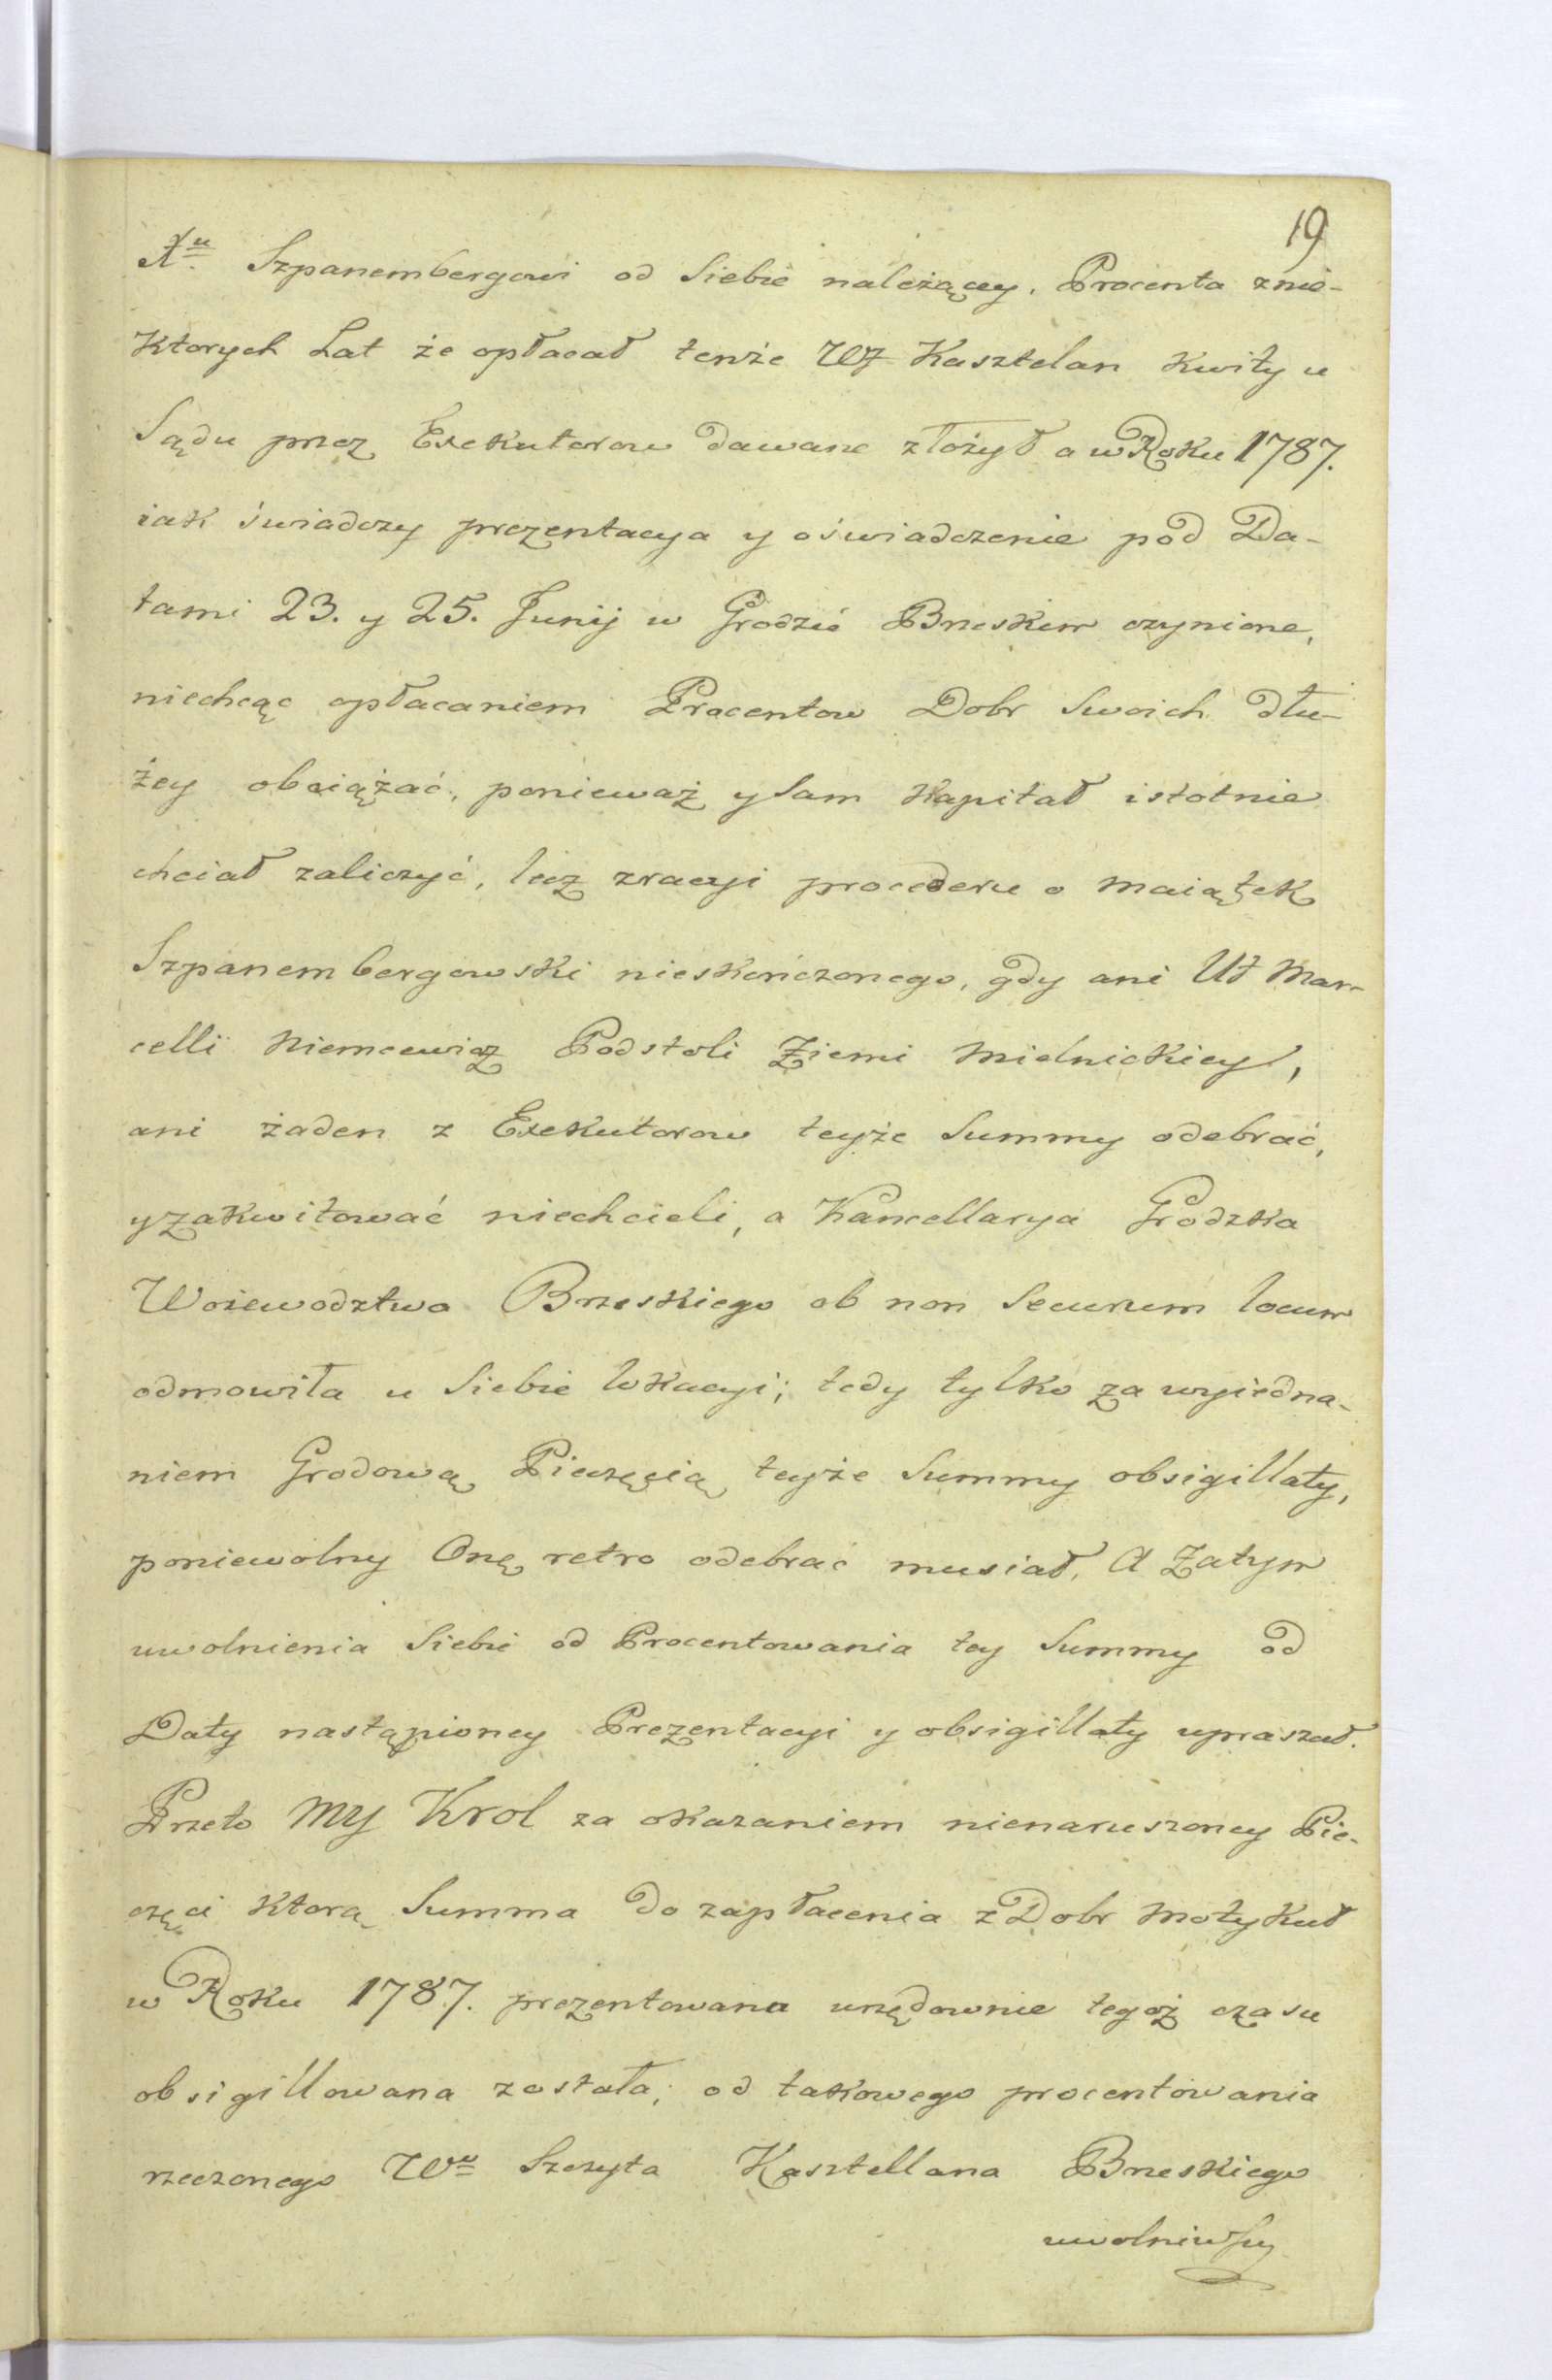 19
Xu Szpanembergowi od Siebie należącey, Procenta znie-
ktorych Lat że opłacał tenże WJ Kasztelan kwity u
Sądu przez Exekutorow dawane złożył a w Roku 1787.
iak świadczy prezentacya y oświadczenie pod Da-
tami 23. y 25. Junij w Grodzie Brzeskim czynione,
niechcąc opłacaniem Procentow Dobr Swoich dłu-
żey obciążać, ponieważ y sam Kapitał istotnie
chciał zaliczyć, lecz zracyi procederu o maiątek
Szpanembergowski nieskończonego, gdy ani UJ Mar-
celli Niemcewicz Podstoli Ziemi Mielnickiey,
ani żaden z Exekutorow teyże Summy odebrać,
y zakwitować niechcieli, a Kancellarya Grodzka
Woiewodztwa Brzeskiego ob non Securum locum
odmowiła u Siebie lokacyi; tedy tylko za wyiedna-
niem Grodową Pieczęcią teyże Summy obsigillaty,
poniewolny Onę retro odebrać musiał, A Zatym
uwolnienia Siebie od Procentowania tey Summy od
Daty nastąpioney Prezentacyi y obsigillaty upraszał.
Przeto MY Krol za okazaniem nienaruszoney Pie-
częci ktorą Summa do zapłacenia z Dobr Motykuł
w Roku 1787. prezentowana urzędownie tegoż czasu
obsigillowana została; od takowego procentowania
rzeczonego Wo Szczyta Kasztellana Brzeskiego
uwolniwszy